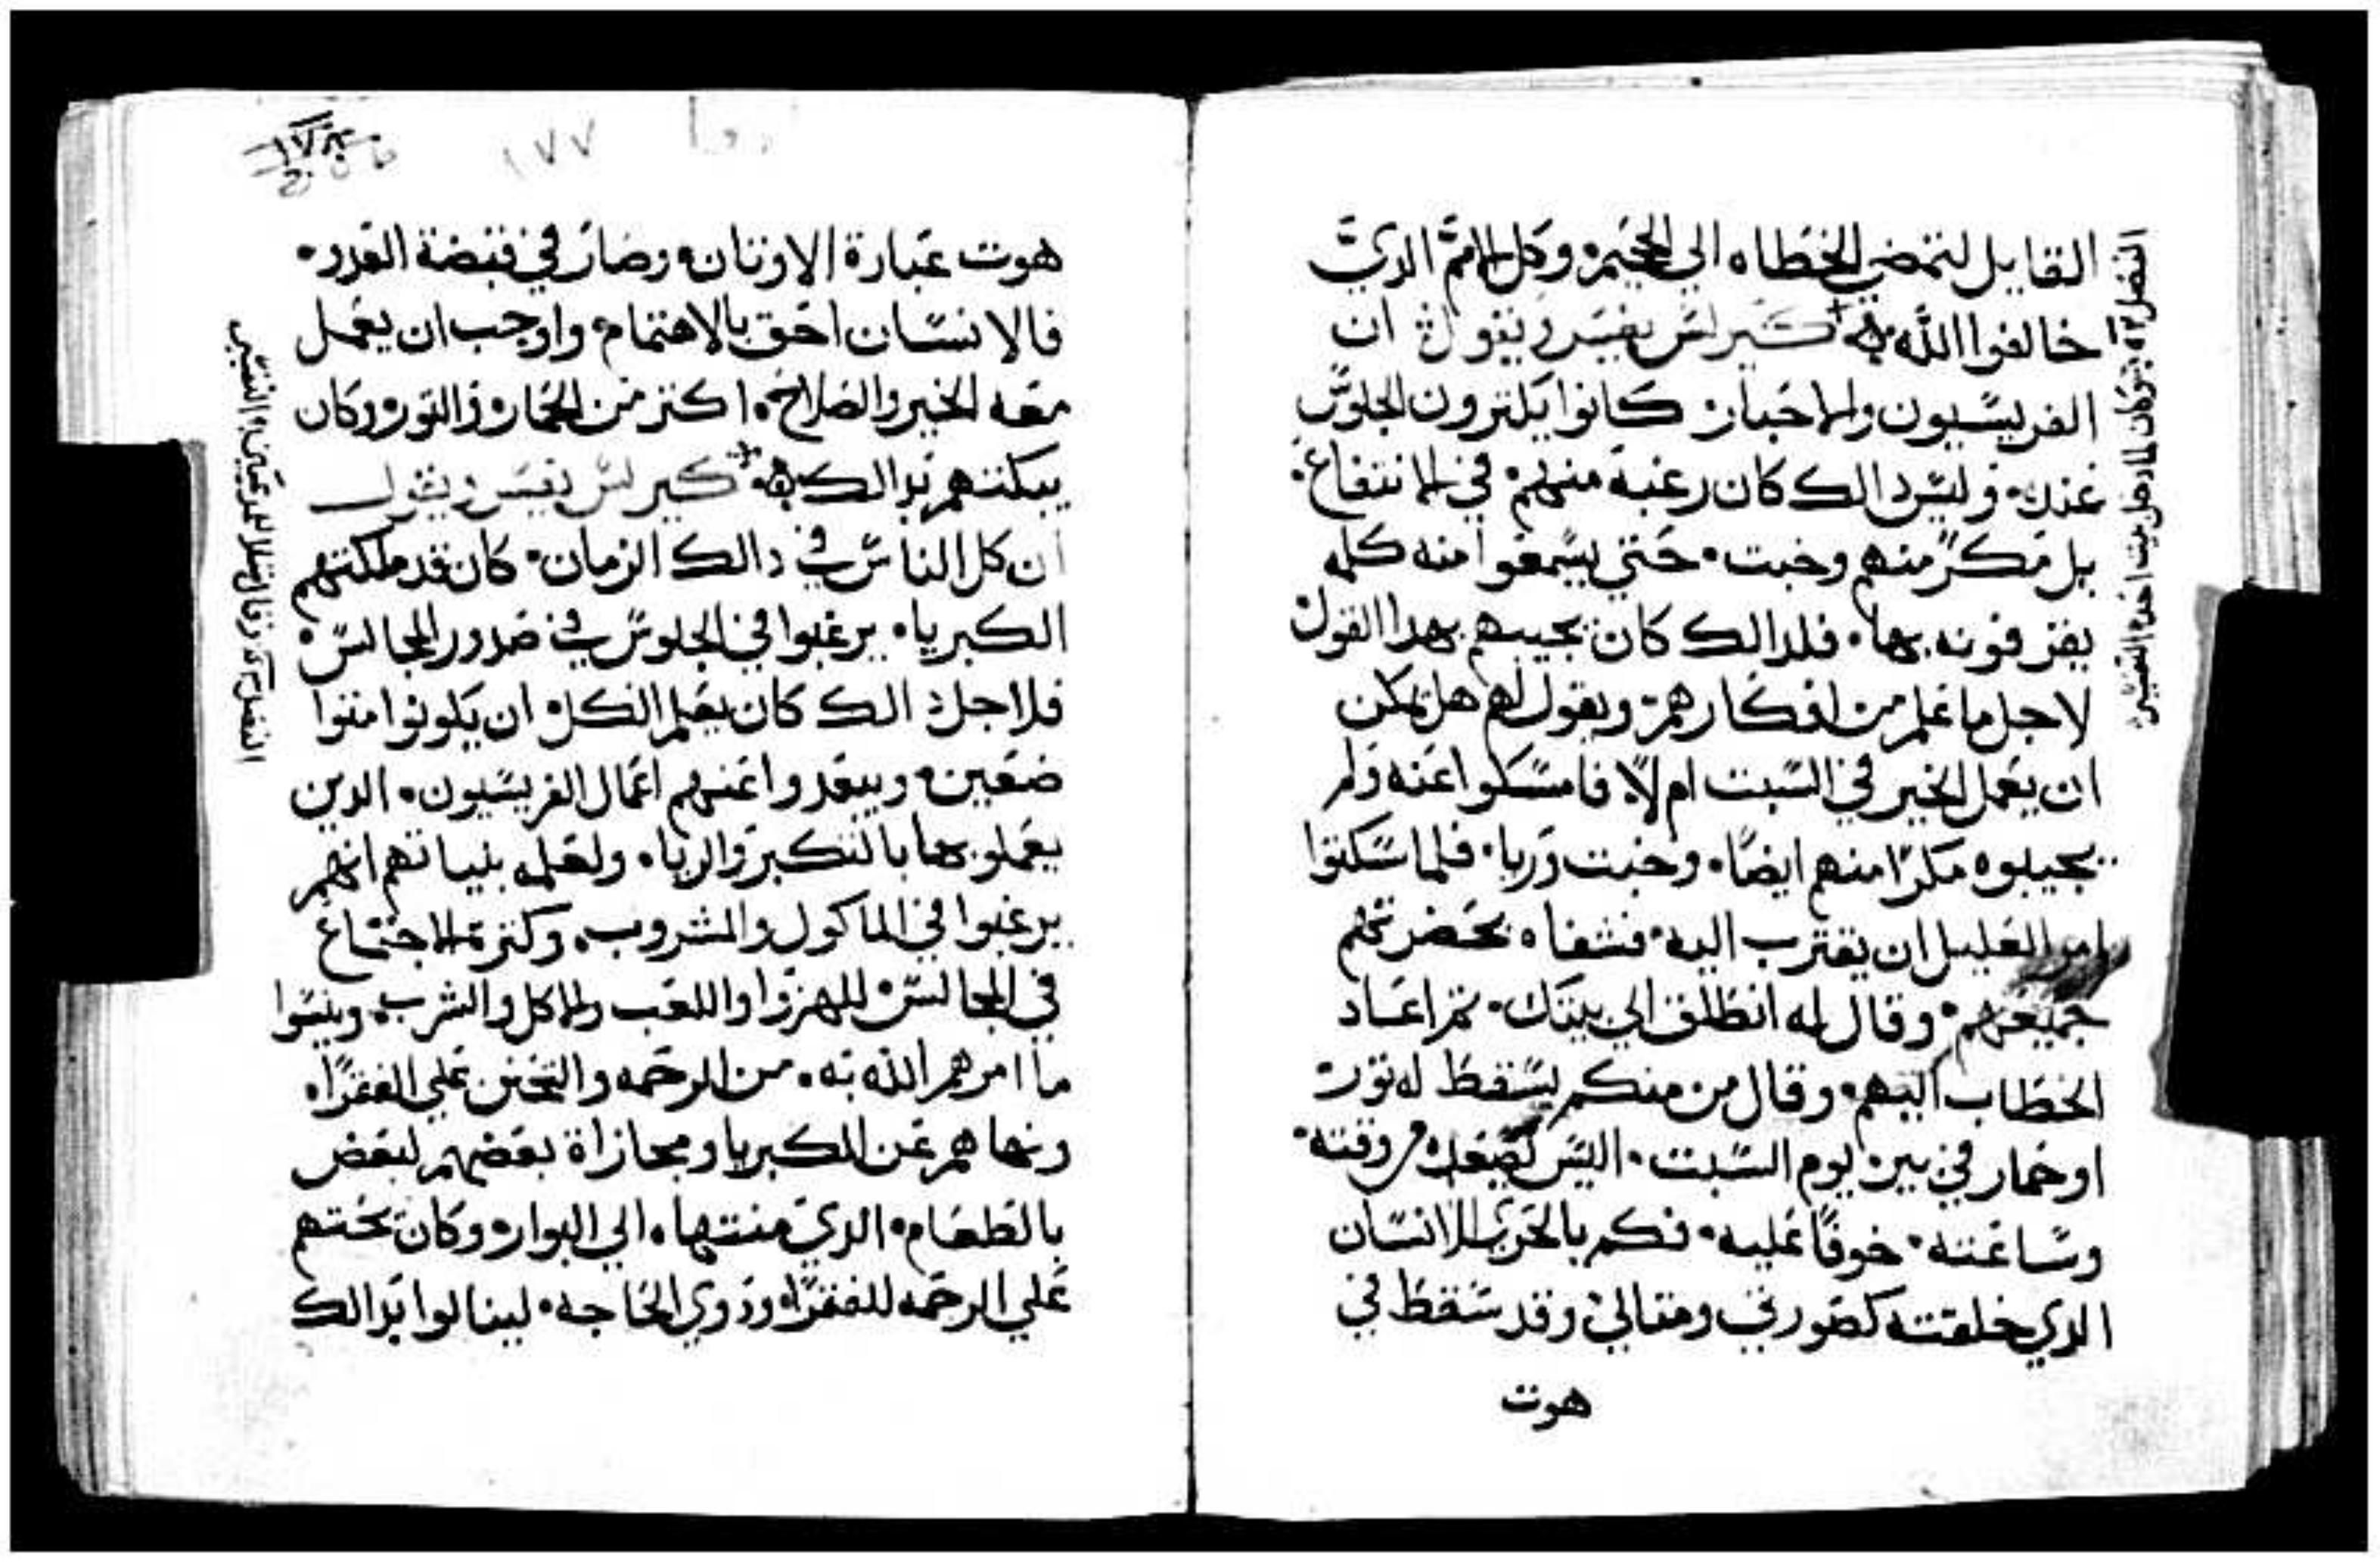 القايل لتمضي الخطاه الي الجحيم وكل الامم الدي
خالفوا الله كيرلس يفسر ويقول ان
الفريسيون والاحبار كانوا يكترون الجلوس
عنده وليس دالك كان رغبة منهم في الانتفاع
بل مكرً منهم وخبت حتي يسمعوا منه كلمه
يقرفونه بها فلدالك كان يجيبهم بهدا القول
لاجل ما علم من افكارهم ويقول لهم هل يمكن
ان يعمل الخير في السبت ام لا فامسكوا عنه ولم
يجيبوه مكرًا منهم ايضًا وخبت وريا فلما سكتوا
امر العليل ان يقترب اليه فشفاه بحضرتهم
جميعهم وقال له انطلق الي بيتك تم اعاد
الخطاب اليهم وقال من منكم يسقط له تور
او حمار في بير يوم السبت اليس يصعده من وقته
وساعته خوفًا عليه فكم بالحري الانسان
الدي خلقته كصورتي ومتالي وقد سقط في
هوت
الفصل كان لما دخل بيت احد التفسير
١٧٧
هوت عبارة الاوتان وصار في قبضة العدو
فالانسان احق بالاهتمام واوجب ان يعمل
معه الخير والصلاح اكتر من الحمار والتور وكان
يبكتهم بدالك كيرلس يفسر ويقول
ان كل الناس في دالك الزمان كان قد ملكتهم
الكبريا يرغبوا في الجلوس في صدور المجالس
فلاجل دالك كان يعلم الكل ان يكونوا متوا
ضعين ويبعدوا عنهم اعمال الفريسيون الدين
يعملوا بها بالتكبر والريا ولعلمه بنياتهم انهم
يرغبوا في الماكول والمشروب وكترة الاجتماع
في المجالس للهزوا واللعب والاكل والشرب وينسوا
ما امرهم الله به من الرحمه والتحنن علي الفقرا
ونهاهم عن الكبريا ومجازاة بعضهم لبعض
بالطعام الدي منتهاه الي البوار وكان يحتهم
علي الرحمه للفقرا ودوي الحاجه لينالوا بدالك
الفصل وقال متلا للمدعيين التفسير